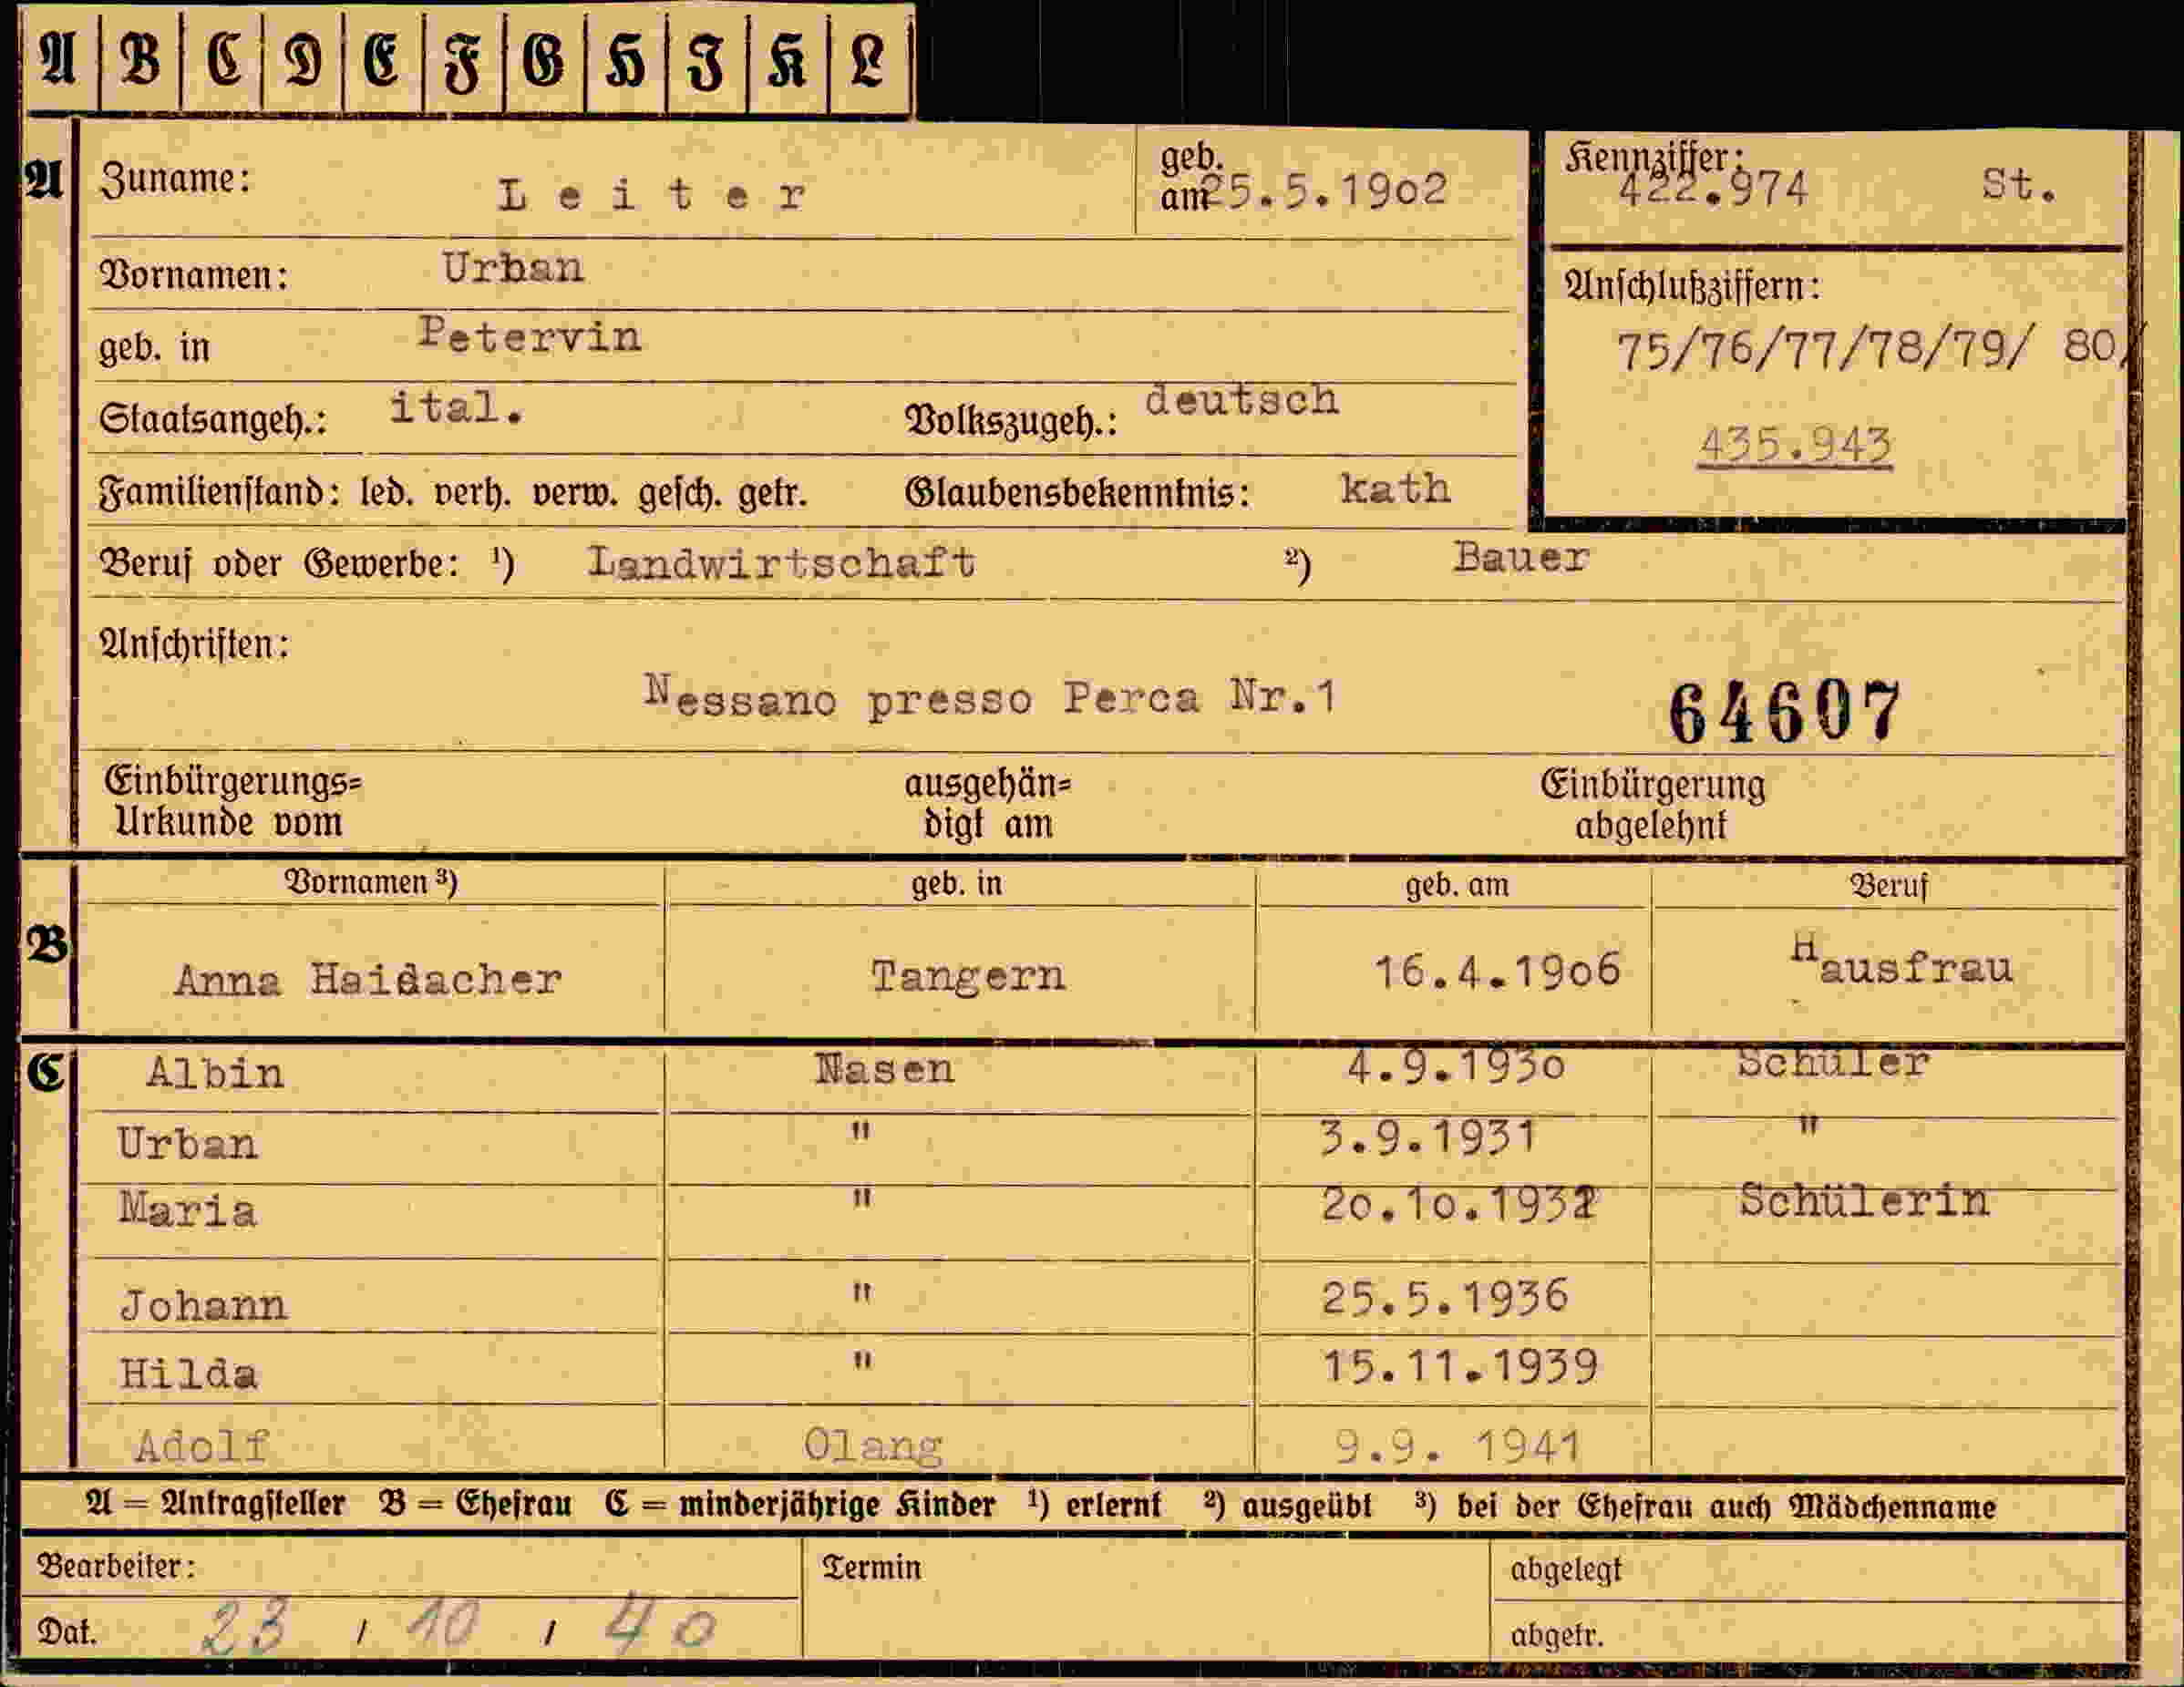 A B C D E F G H I K L
A Zuname: Leiter geb. am 25.5.1902 Kennziffer: 422.974 St.
Vornamen: Urban Anschlußziffern:
geb. in Petervin 75/76/77/78/79/ 80/
Staatsangeh.: ital. Volkszugeh.: deutsch 435.943
Familienstand: led. verh. verw. gesch. getr. Glaubensbekenntnis: kath
Beruf oder Gewerbe: ¹) Landwirtschaft ²) Bauer
Anschriften:
Nessano presso Perca Nr.1 64607
Einbürgerungs= ausgehän= Einbürgerung
Urkunde vom digt am abgelehnt
Vornamen ³) geb. in geb. am Beruf
B Anna Haidacher Tangern 16.4.1906 Hausfrau
C Albin Nasen 4.9.1930 Schüler
Urban " 3.9.1931 "
Maria " 20.10.1932 Schülerin
Johann " 25.5.1936
Hilda " 15.11.1939
Adolf Olang 9.9. 1941
A = Antragsteller B = Ehefrau C = minderjährige Kinder ¹) erlernt ²) ausgeübt ³) bei der Ehefrau auch Mädchenname
Bearbeiter: Termin abgelegt
Dat. 23 / 10 / 40 abgetr.